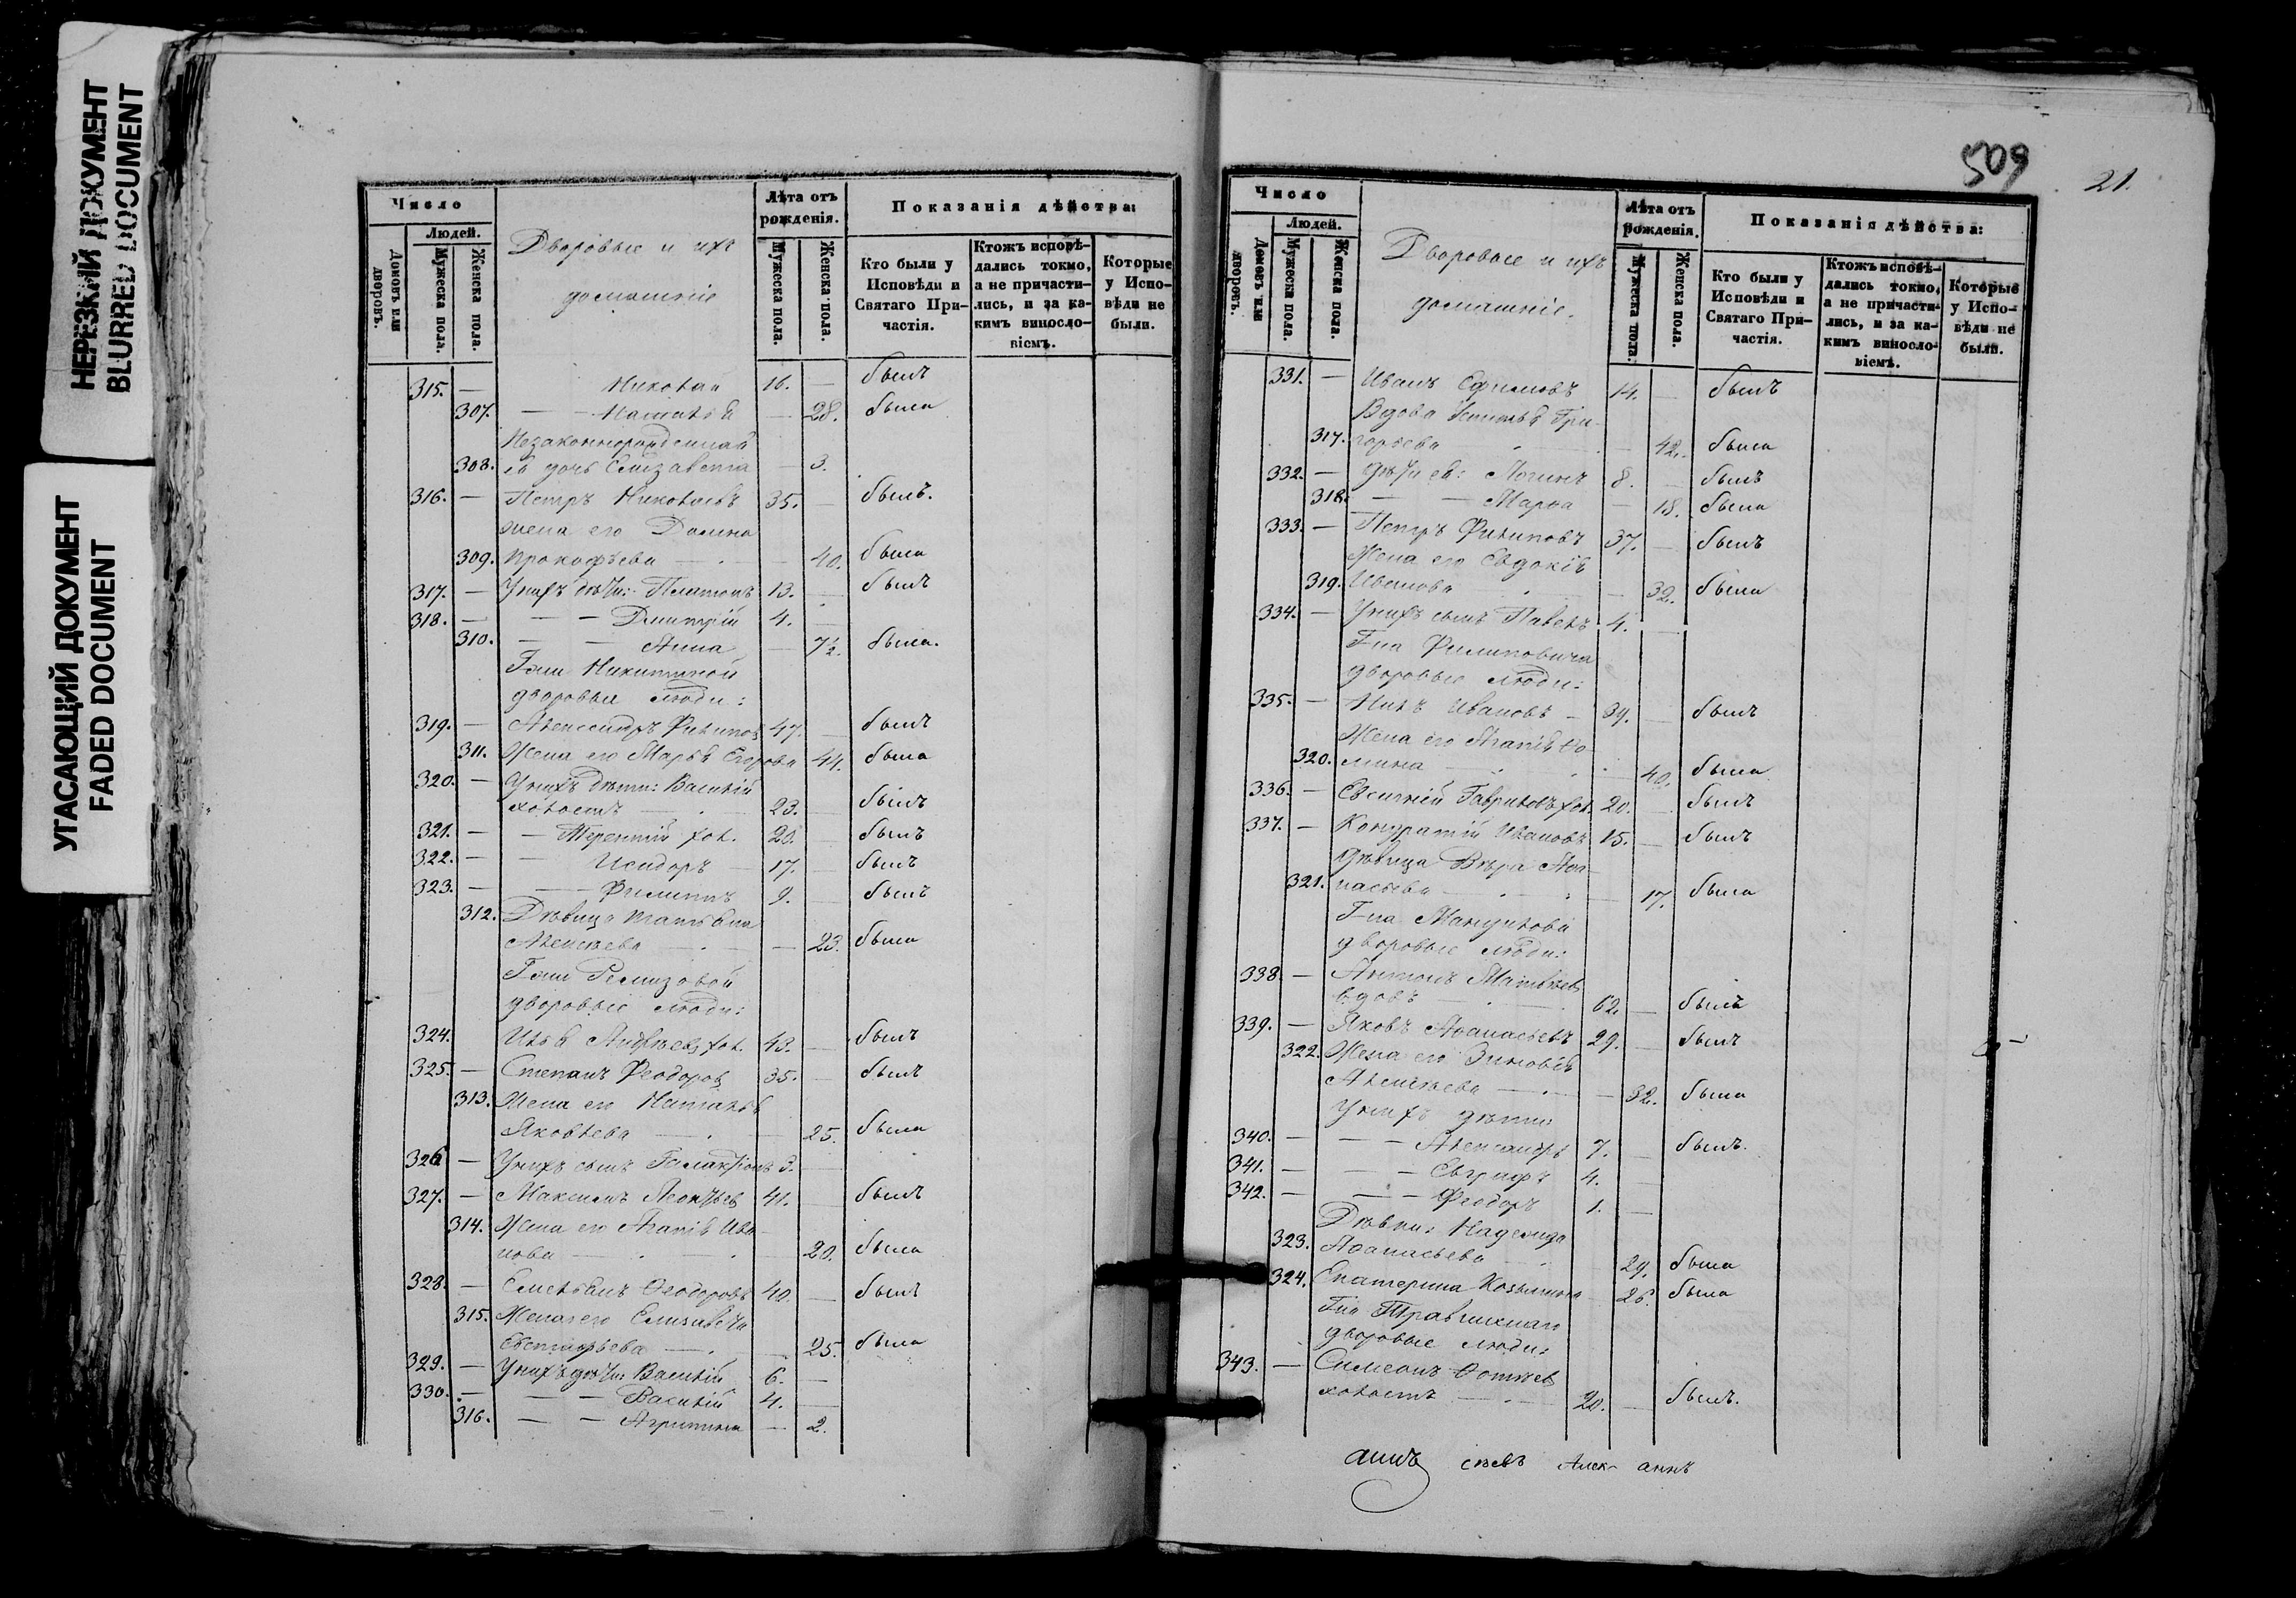 НЕРЕЗКИЙ ДОКУМЕНТ
BLURRED DOCUMENT
УГАСАЮЩИЙ ДОКУМЕНТ
FADED DOCUMENT
Число
Людей.
Домовъ или дворовъ.
Мужеска пола.
Женска пола.
Дворовые и ихъ
домашніе
Лѣта отъ рожденія.
Мужеска пола.
Женска пола.
Показанія дѣйства:
Кто были у Исповѣди и Святаго При-частія.
Ктожъ исповѣ-дались токмо, а не причасти-лись, и за ка-кимъ виносло-віемъ.
Которые у Испо-вѣди не были.
315. — Николай 16. — былъ
307. — — Наталья — 28. была
Незаконнорожденная
308. ея дочь Елизавета — 3.
316. — Петръ Николаевъ 35. — былъ.
жена его Домна
309. Прокофьева — 40. была
317. — У нихъ дѣти: Платонъ 13. — былъ
318. — — — Дмитрій 4. —
310. — — Анна — 7½. была.
Гжи Никитиной
дворовые люди:
319. — Александръ Филипов 47. — былъ
311. Жена его Марья Егорова 44. была
320. — У нихъ дѣти: Василій
холостъ — 23. — былъ
321. — — Терентій хол. 20. — былъ
322. — — Исидоръ — 17. — былъ
323. — — Филиппъ 9. — былъ
312. Дѣвица Татьяна
Алексѣева — — 23. была
Гжи Ремизовой
дворовые люди:
324. Илья Андреев хол. 43. — былъ
325. — Степанъ Феодоров 35. — былъ
313. Жена его Наталья
Яковлева — — 25. была
326 — У нихъ сынъ Галактіонъ 3. —
327. — Максимъ Леонтьев 41. — былъ
314. Жена его Агапія Ива-
нова — 20. была
328. — Емельянъ Ѳеодоровъ 40. — былъ
315. Жена его Елизавета
Евстафьева — — 25. была
329. — У нихъ дѣти: Василій 6. —
330. — — — Василій 4. —
316. — — Агрипина — 2.
509
21.
Число
Людей.
Домовъ или дворовъ.
Мужеска пола.
Женска пола.
Дворовые и ихъ
домашніе.
Лѣта отъ рожденія.
Мужеска пола.
Женска пола.
Показанія дѣйства:
Кто были у Исповѣди и Святаго При-частія.
Ктожъ исповѣ-дались токмо, а не причасти-лись, и за ка-кимъ виносло-віемъ.
Которые у Испо-вѣди не были.
331. — Иванъ Ефимовъ 14. — былъ
Вдова Устинья Гри-
317. горьева — 42. была
332. — Дѣти ея: Логинъ 8. — былъ
318. — — Марѳа — 18. была
333. — Петръ Филиповъ 37. — былъ
Жена его Евдокія
319. Иванова — 32. была
334. — У нихъ сынъ Павелъ 4. —
Гна Филиповича
дворовые люди:
335. — Нилъ Ивановъ — 39. — былъ
Жена его Агапія Ѳо-
320. мина — 40. была
336. — Евгеній Гавриловъ хол. 20. — былъ
337. — Кондратій Ивановъ 15. — былъ
Дѣвица Вѣра Аѳа-
321. насьева — — 17. была
Гна
дворовые люди:
338. — Антонъ Матвѣев
вдовъ — 62. — былъ
339. — Яковъ Аѳанасьевъ 29. — былъ
322. Жена его Зиновія
Алексѣева — — 32. была
У нихъ дѣти:
340. — — — Александръ 7. — былъ.
341. — — — Евграфъ 4. —
342. — — — Феодоръ 1. —
Дѣвки: Надежда
323. Аѳанасьева 29. была
324. Екатерина Козьмина 26. была
Гна
дворовые люди:
343. — Симеонъ Ѳотіев
холостъ — 20. — былъ.